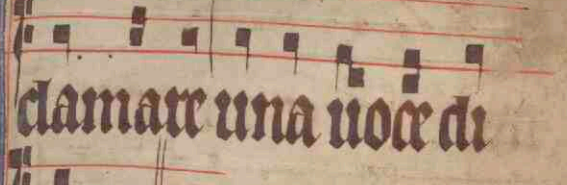 clamare una uoce di